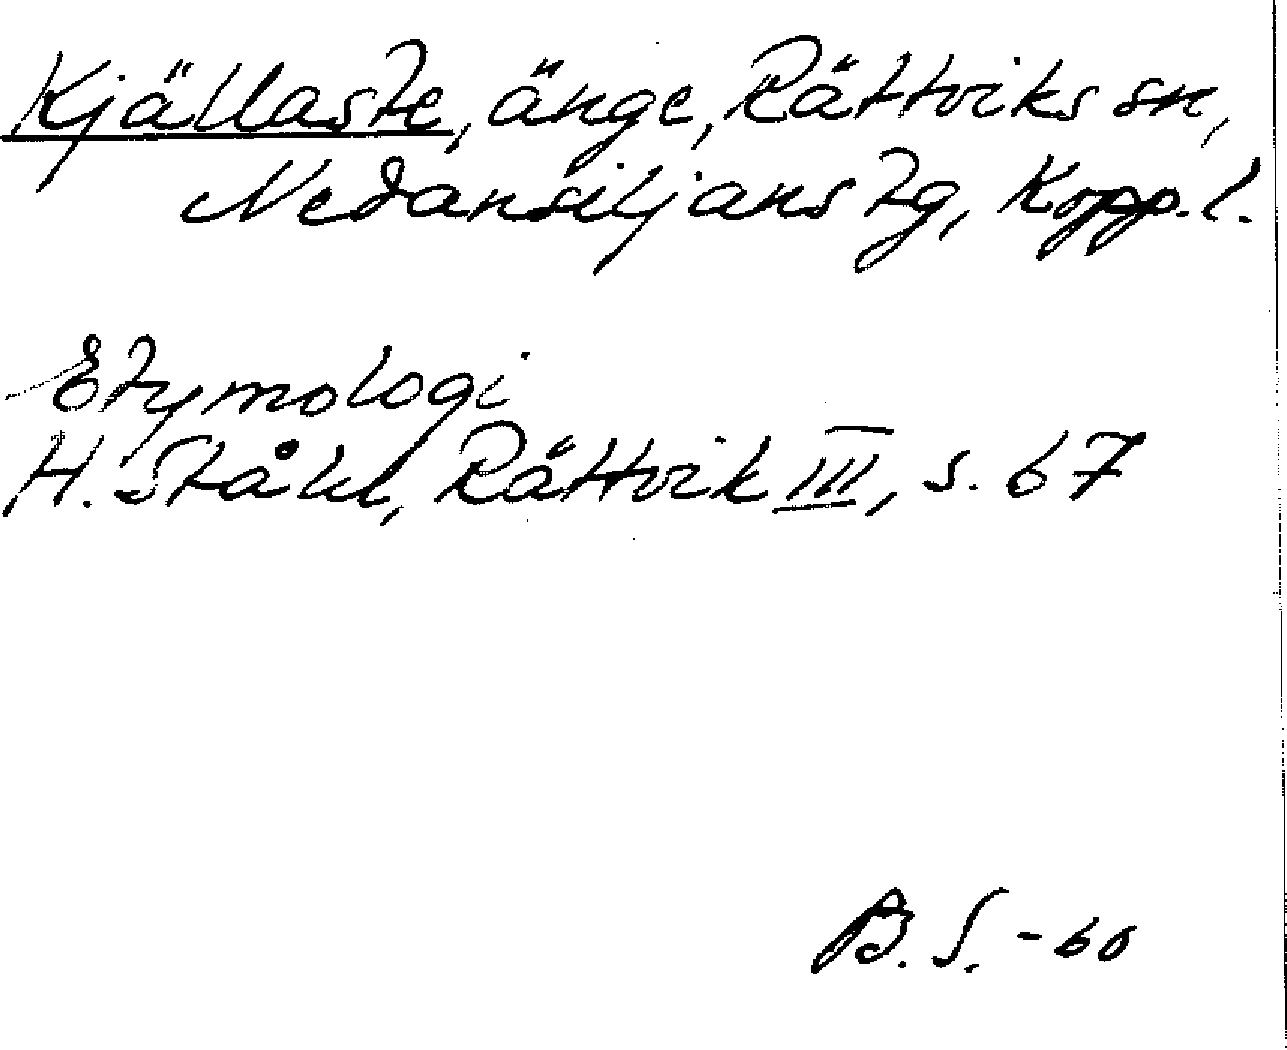 Kjällaste, änge, Rättviks sn,
Nedansiljans tg, Kopp. l.
Etymologi
H. Ståhl, Rättvik III, s. 67
B. S. -60